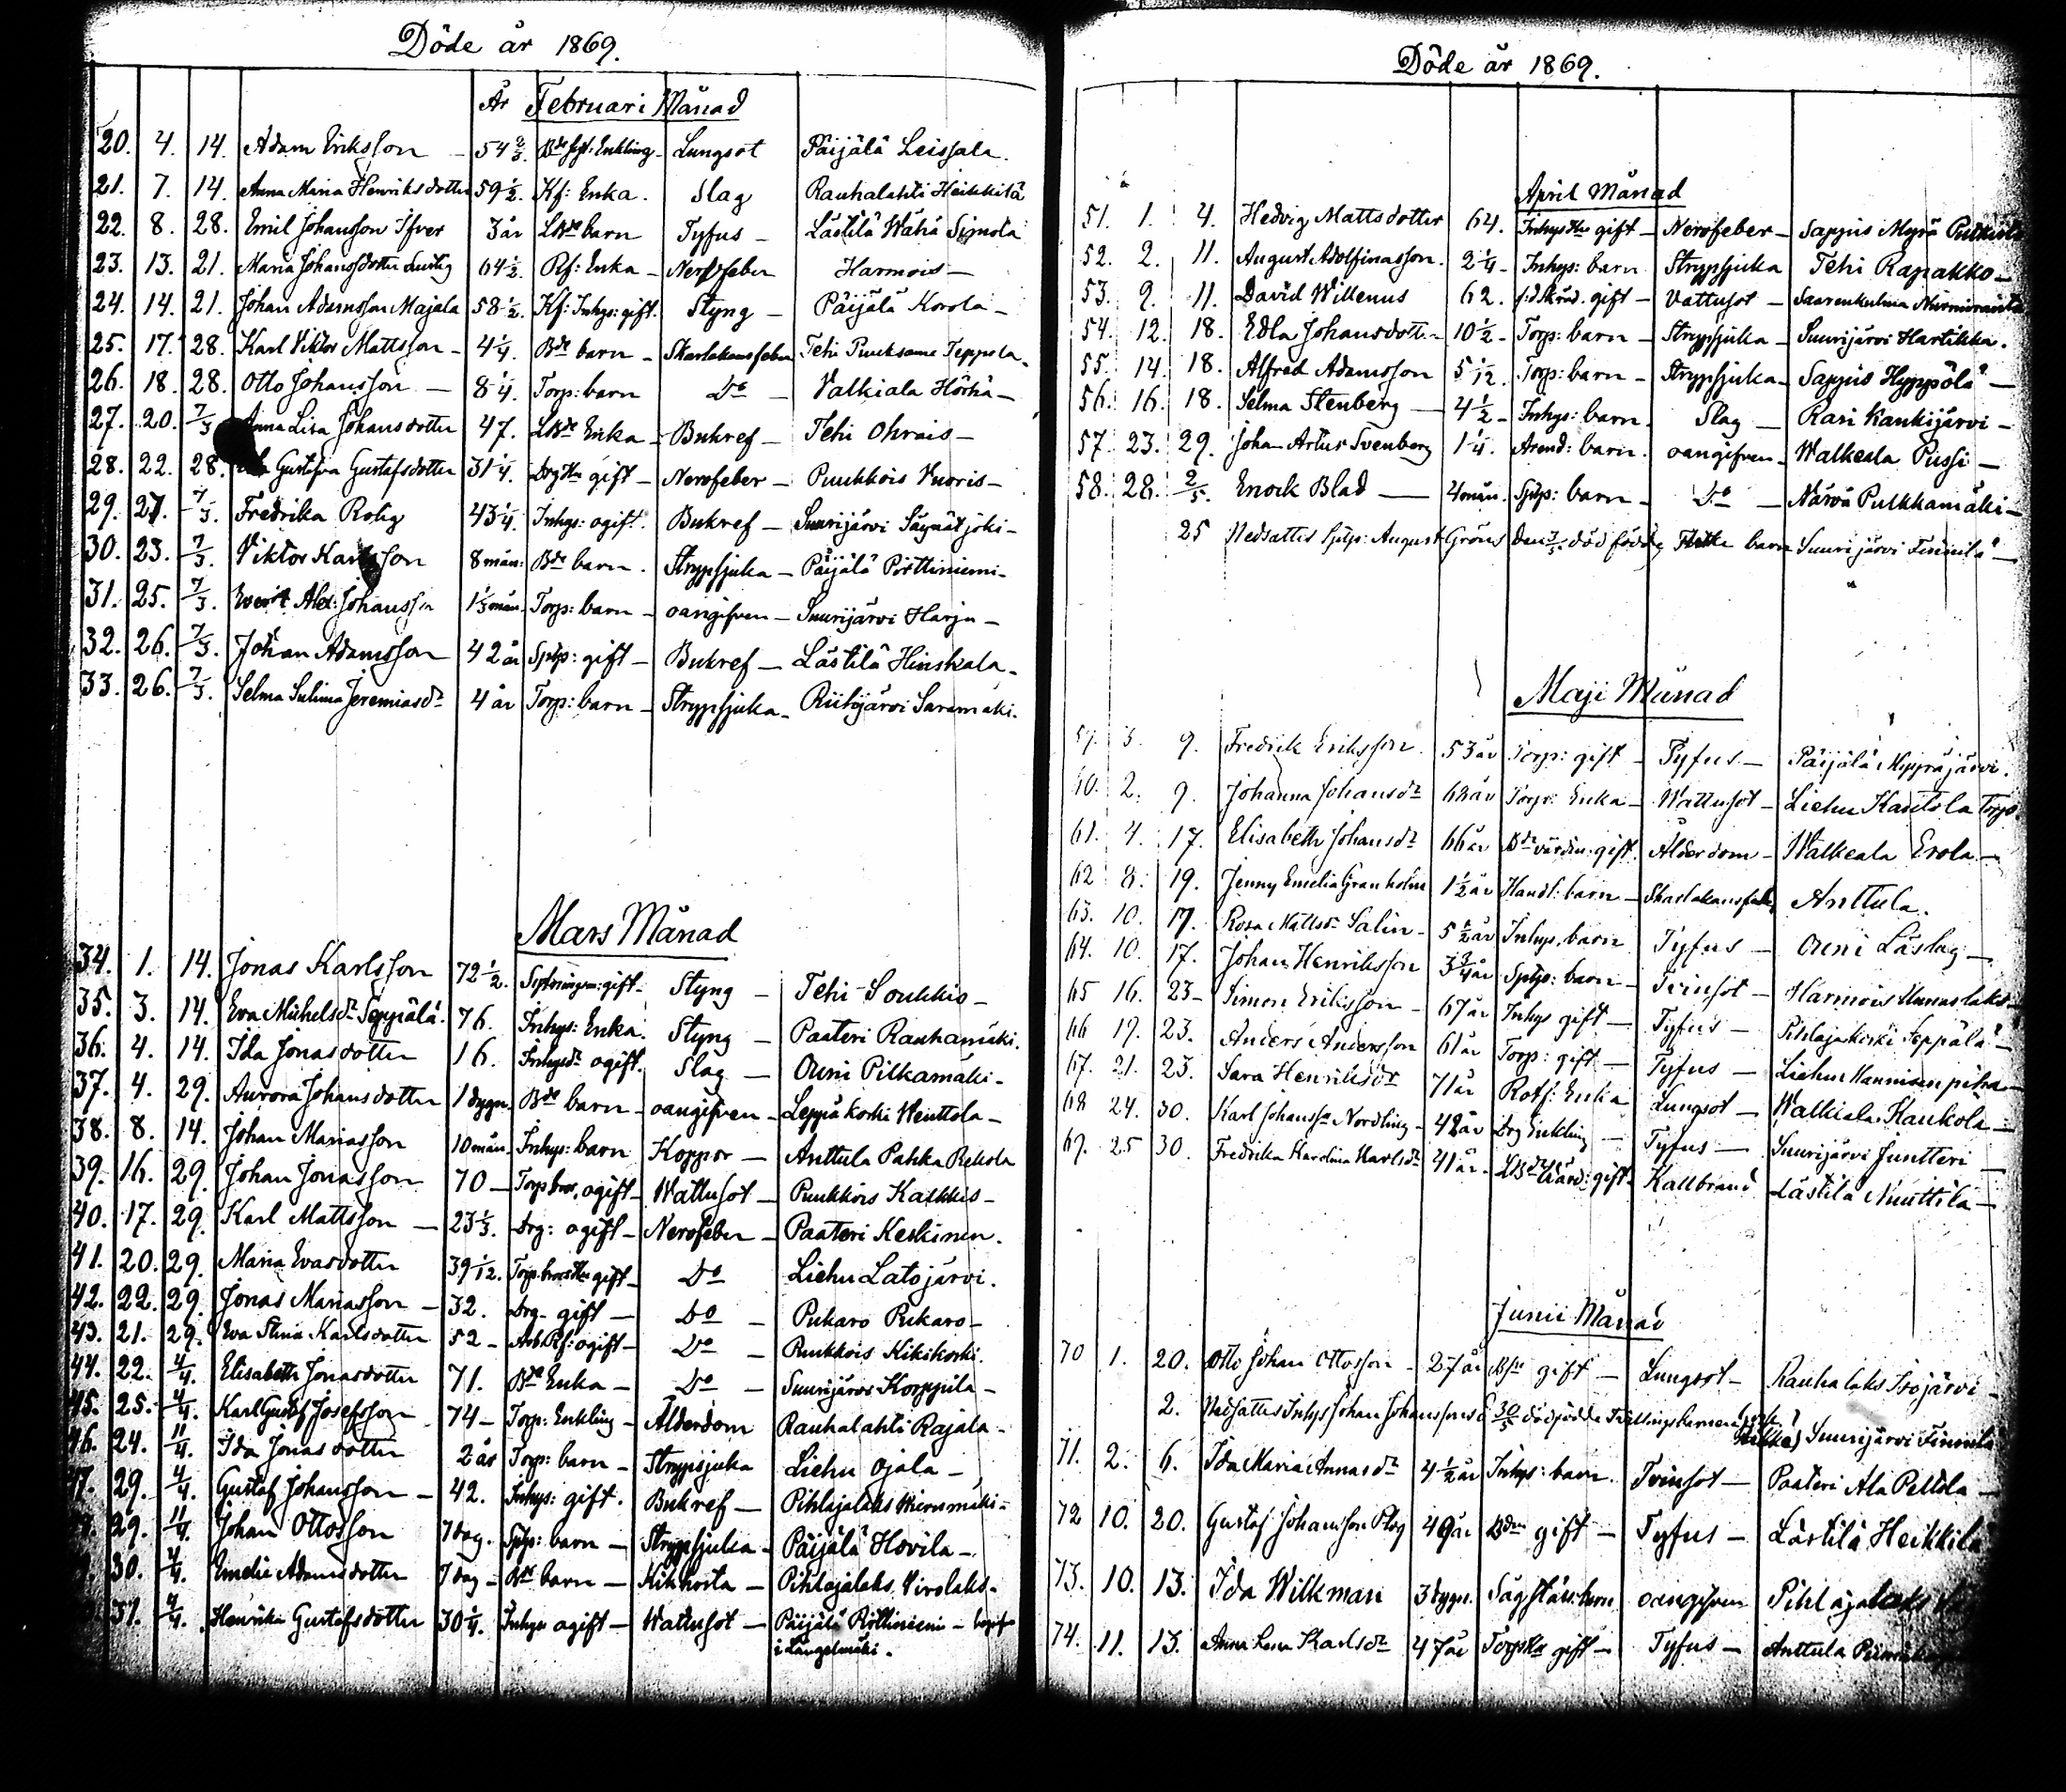 Döde år 1869.
År Februari Månad
20. 4. 14. Adam Eriksson 54 Enkling Lungsot Päijälä Leissala.
21. 7. 14. Anna Maria Henriksdotter 59 1/2. Kf: Enka. Slag Rauhalahti Heikkilä
22. 8. 28. Emil Johansson Ifver 3 år barn Tyfus – Lästilä Wähä Simola
23. 13. 21. Maria Johansdotter 64 1/2. Rf: Enka – Nervfeber Harmois –
24. 14. 21. Johan Adamsson Majala 58 1/2. Kf: Inhys: gift. Styng – Päijälä Korola –
25. 17. 28. Karl Viktor Mattsson – 4 1/4. Bde barn – Skarlakansfeber Tehi Puuksame Teppola –
26. 18. 28. Otto Johansson — 8 1/4. Torp: barn Do – Valkiala Hörhä –
27. 20. 7/3 Anna Lisa Johansdotter 47. Enka – Bukref – Tehi Ohrais –
28. 22. 28. Gustafva Gustafsdotter 31 1/4. gift – Nervfeber – Puukkois Vuoris –
29. 27. 7/3. Fredrika Rolig 43 1/4. Inhys: ogift. Bukref – Suurijärvi Säynätjoki –
30. 23. 7/3. Viktor Karlsson 8 mån: Bde barn. Strypsjuka – Päijälä Pörttiniemi –
31. 25. 7/3. Alex: Johansson Torp: barn – oangifven – Suurijärvi Harju –
32. 26. 7/3. Johan Adamsson 42 år Sptp: gift – Bukref – Lästilä Hinskala –
33. 26. 7/3. Selma Sulima Jeremiasdr 4 år Torp: barn – Strypsjuka – Riihijärvi Saramäki.
Mars Månad
34. 1. 14. Jonas Karlsson 72 1/2. gift – Styng – Tehi Soukkis –
35. 3. 14. Eva Michelsdr Seppälä. 76. Inhys: Enka. Styng – Paateri Rauhamäki.
36. 4. 14. Ida Jonasdotter 16. ogift. Slag – Ouni Pitkämäki –
37. 4. 29. Aurora Johansdotter 1 dygn. Bde barn – oangifven – Leppäkoski Wenttola –
38. 8. 14. Johan Mariasson 10 mån. Inhys: barn Koppor – Anttula Pahka Rekola
39. 16. 29. Johan Jonasson 70 – ogift – Wattusot – Puukkois Kalkkis –
40. 17. 29. Karl Mattsson — 23 1/3. Drg: ogift – Nervfeber – Paateri Keskinen.
41. 20. 29. Maria Evasdotter 39 1/12. gift – Do Liehu Latojärvi.
42. 22. 29. Jonas Mariasson – 32. Drg – gift — Do – Pukaro Pukaro –
43. 21. 29. Eva Stina Karlsdotter 52 – ogift – Do – Puukkois Kikikoski.
44. 22. 4/4. Elisabeth Jonasdotter 71. Bde Enka – Do – Suurijärvi Korppila –
45. 25. 4/4. Karl Gustaf Josefsson 74 – Torp: Enkling – Ålderdom Rauhalahti Rajala –
46. 24. 11/4. Ida Jonasdotter 2 år Torp: barn – Strypsjuka Liehu Ojala –
47. 29. 4/4. Gustaf Johansson – 42. Inhys: gift. Bukref – Pihlajalaks Hiernmäki –
29. 11/4. Johan Ottosson 7 dag. Sptp: barn – Strypsjuka – Päijälä Hovila –
30. 4/4. Emelie Adamsdotter 7 dag – Bde barn – Kikhosta – Pihlajalaks Virolaks –
31. 4/4. Henrika Gustafsdotter 30 1/4. Inhys ogift – Wattusot – Päijälä Pörttiniemi –
i Längelmäki.
Döde år 1869.
April Månad
51. 1. 4. Hedvig Mattsdotter 64. gift – Nervfeber – Sappis Myrä
52. 2. 11. August Adolfinasson. 2 1/4 – Inhys: barn Strypsjuka Tehi Rapakko –
53. 9. 11. David Willenus 62. gift – Vattusot – Saarenkulma
54. 12. 18. Edla Johansdotter 10 1/2 – Torp: barn – Strypsjuka – Suurijärvi Hartikka.
55. 14. 18. Alfred Adamsson 5/12. Torp: barn – Strypsjuka – Sappis Hyppölä –
56. 16. 18. Selma Stenberg — 4 1/2 – Inhys: barn. Slag — Rasi Kankijärvi –
57. 23. 29. Johan Artur Svenberg 1 1/4. Arend: barn. oangifven – Walkeala Pussi –
58. 28. 2/5. Enock Blad — 4 mån. Sptp: barn – Do – Närvä Pulkkamäki –
25 Nedsattes Sptp: August Gröns död född barn Suurijärvi Finnilä –
Maji Månad
59. 3. 9. Fredrik Eriksson 53 år Torp: gift – Tyfus – Päijälä Myräjärvi.
60. 2. 9. Johanna Johansdr 68 år Torp: Enka – Wattusot – Liehu Kantola Torp.
61. 4. 17. Elisabeth Johansdr 66 år gift. Ålderdom – Walkeala Erola –
62 8. 19. Jenny Emelia Granholm 1 1/2 år Handl: barn – Skarlakansfeber Anttula.
63. 10. 17. Rosa Mattsdr Salin – 5 1/2 år Inhys. barn Tyfus – Ouni Låstag –
64. 10. 17. Johan Henriksson 3 3/4 år Sptp: barn – Tvinsot – Harmois Unnaslaks –
65 16. 23 – Simon Eriksson – 67 år Inhys gift – Tyfus – Pihlajakoski Seppälä –
66 19. 23. Anders Andersson 61 år Torp: gift – Tyfus – Liehu Mannisenpiha –
67. 21. 23. Sara Henriksdr 71 år Rotf: Enka Lungsot – Walkiala Kaukola –
68 24. 30. Karl Johansson Nordling – 48 år Drg Enkling – Tyfus – Suurijärvi Juntteri –
69. 25 30. Fredrika Karolina Karlsdr 41 år. gift – Kallbrand Lästilä Nuuttila –
Junii Månad
70 1. 20. Otto Johan Ottosson – 27 år gift – Lungsot – Rauhalaks Isojärvi –
2. Nedsattes Inhys Johan Johanssons 30/5 dödfödde Tvillingsbarnen Suurijärvi Finnilä
71. 2. 6. Ida Maria Annasdr 4 1/2 år Inhys: barn. Tvinsot – Paateri Ala Peltola –
72 10. 20. Gustaf Johansson Plog 49 år Bdn gift – Tyfus – Lästilä Heikkilä
73. 10. 13. Ida Wilkman 3 dygn. barn oangifven Pihlajalaks
74. 11. 13. Anna Lena Karlsdr 47 år gift – Tyfus – Anttula